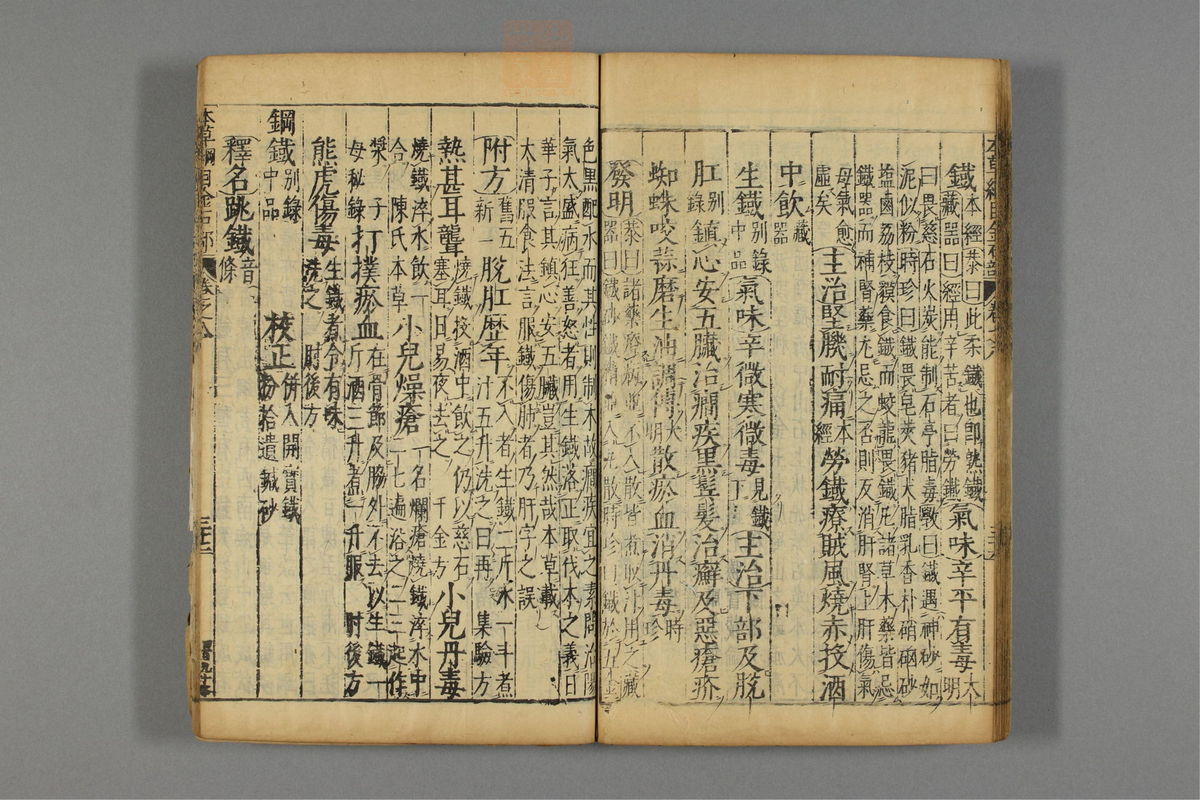 鐵本經恭曰此柔鐵也即熟鐵
藏器曰經用辛苦者曰勞鐵氣味辛平有毒大明
曰畏慈石火炭能制石亭脂毒斅曰鐵遇神砂如
泥似粉時珍曰鐵畏皂莢猪犬脂乳香朴硝硇砂
鹽鹵荔枝貘食鐵而蛟龍畏鐵凡諸草木藥皆忌
鐵器而補腎藥尤忌之否則反消肝腎上肝傷氣
母氣愈虛矣主治堅肌耐痛本經勞鐵療賊風燒赤投酒
中飲藏器
生鐵別錄中品氣味辛微寒微毒見鐵下主治下部及脫
肛別錄鎮心安五臟治癇疾黑鬢髮治癬及惡瘡疥
蜘蛛咬蒜磨生油調傅大明散瘀血消丹毒時珍
發明恭曰諸藥療病並不入散皆煮取汁用之藏
器曰鐵砂鐵精並入丸散時珍曰鐵於五金
色黑配水而其性則制木故癇疾宜之素問治陽
氣太盛病狂善怒者用生鐵落正取伐木之義日
華子言其鎮心安五臟豈其然哉本草載
太清服食法言服鐵傷肺者乃肝字之誤
附方舊五新一脫肛歷年不入者生鐵二斤水一斗煮汁五升洗之日再 集驗方
熱甚耳聾燒鐵投酒中飲之仍以慈石塞耳日易夜去之 千金方小兒丹毒
燒鐵淬水飲一合 陳氏本草小兒燥瘡一名爛瘡燒鐵淬水中二七遍浴之二三起作
漿 子母秘錄打撲瘀血在骨節及脇外不去以生鐵一斤酒三升煮一升服 肘後方
熊虎傷毒生鐵煮令有味洗之 肘後方
鋼鐵別錄中品
釋名跳鐵音條 校正併入開寶鐵粉拾遺鍼砂